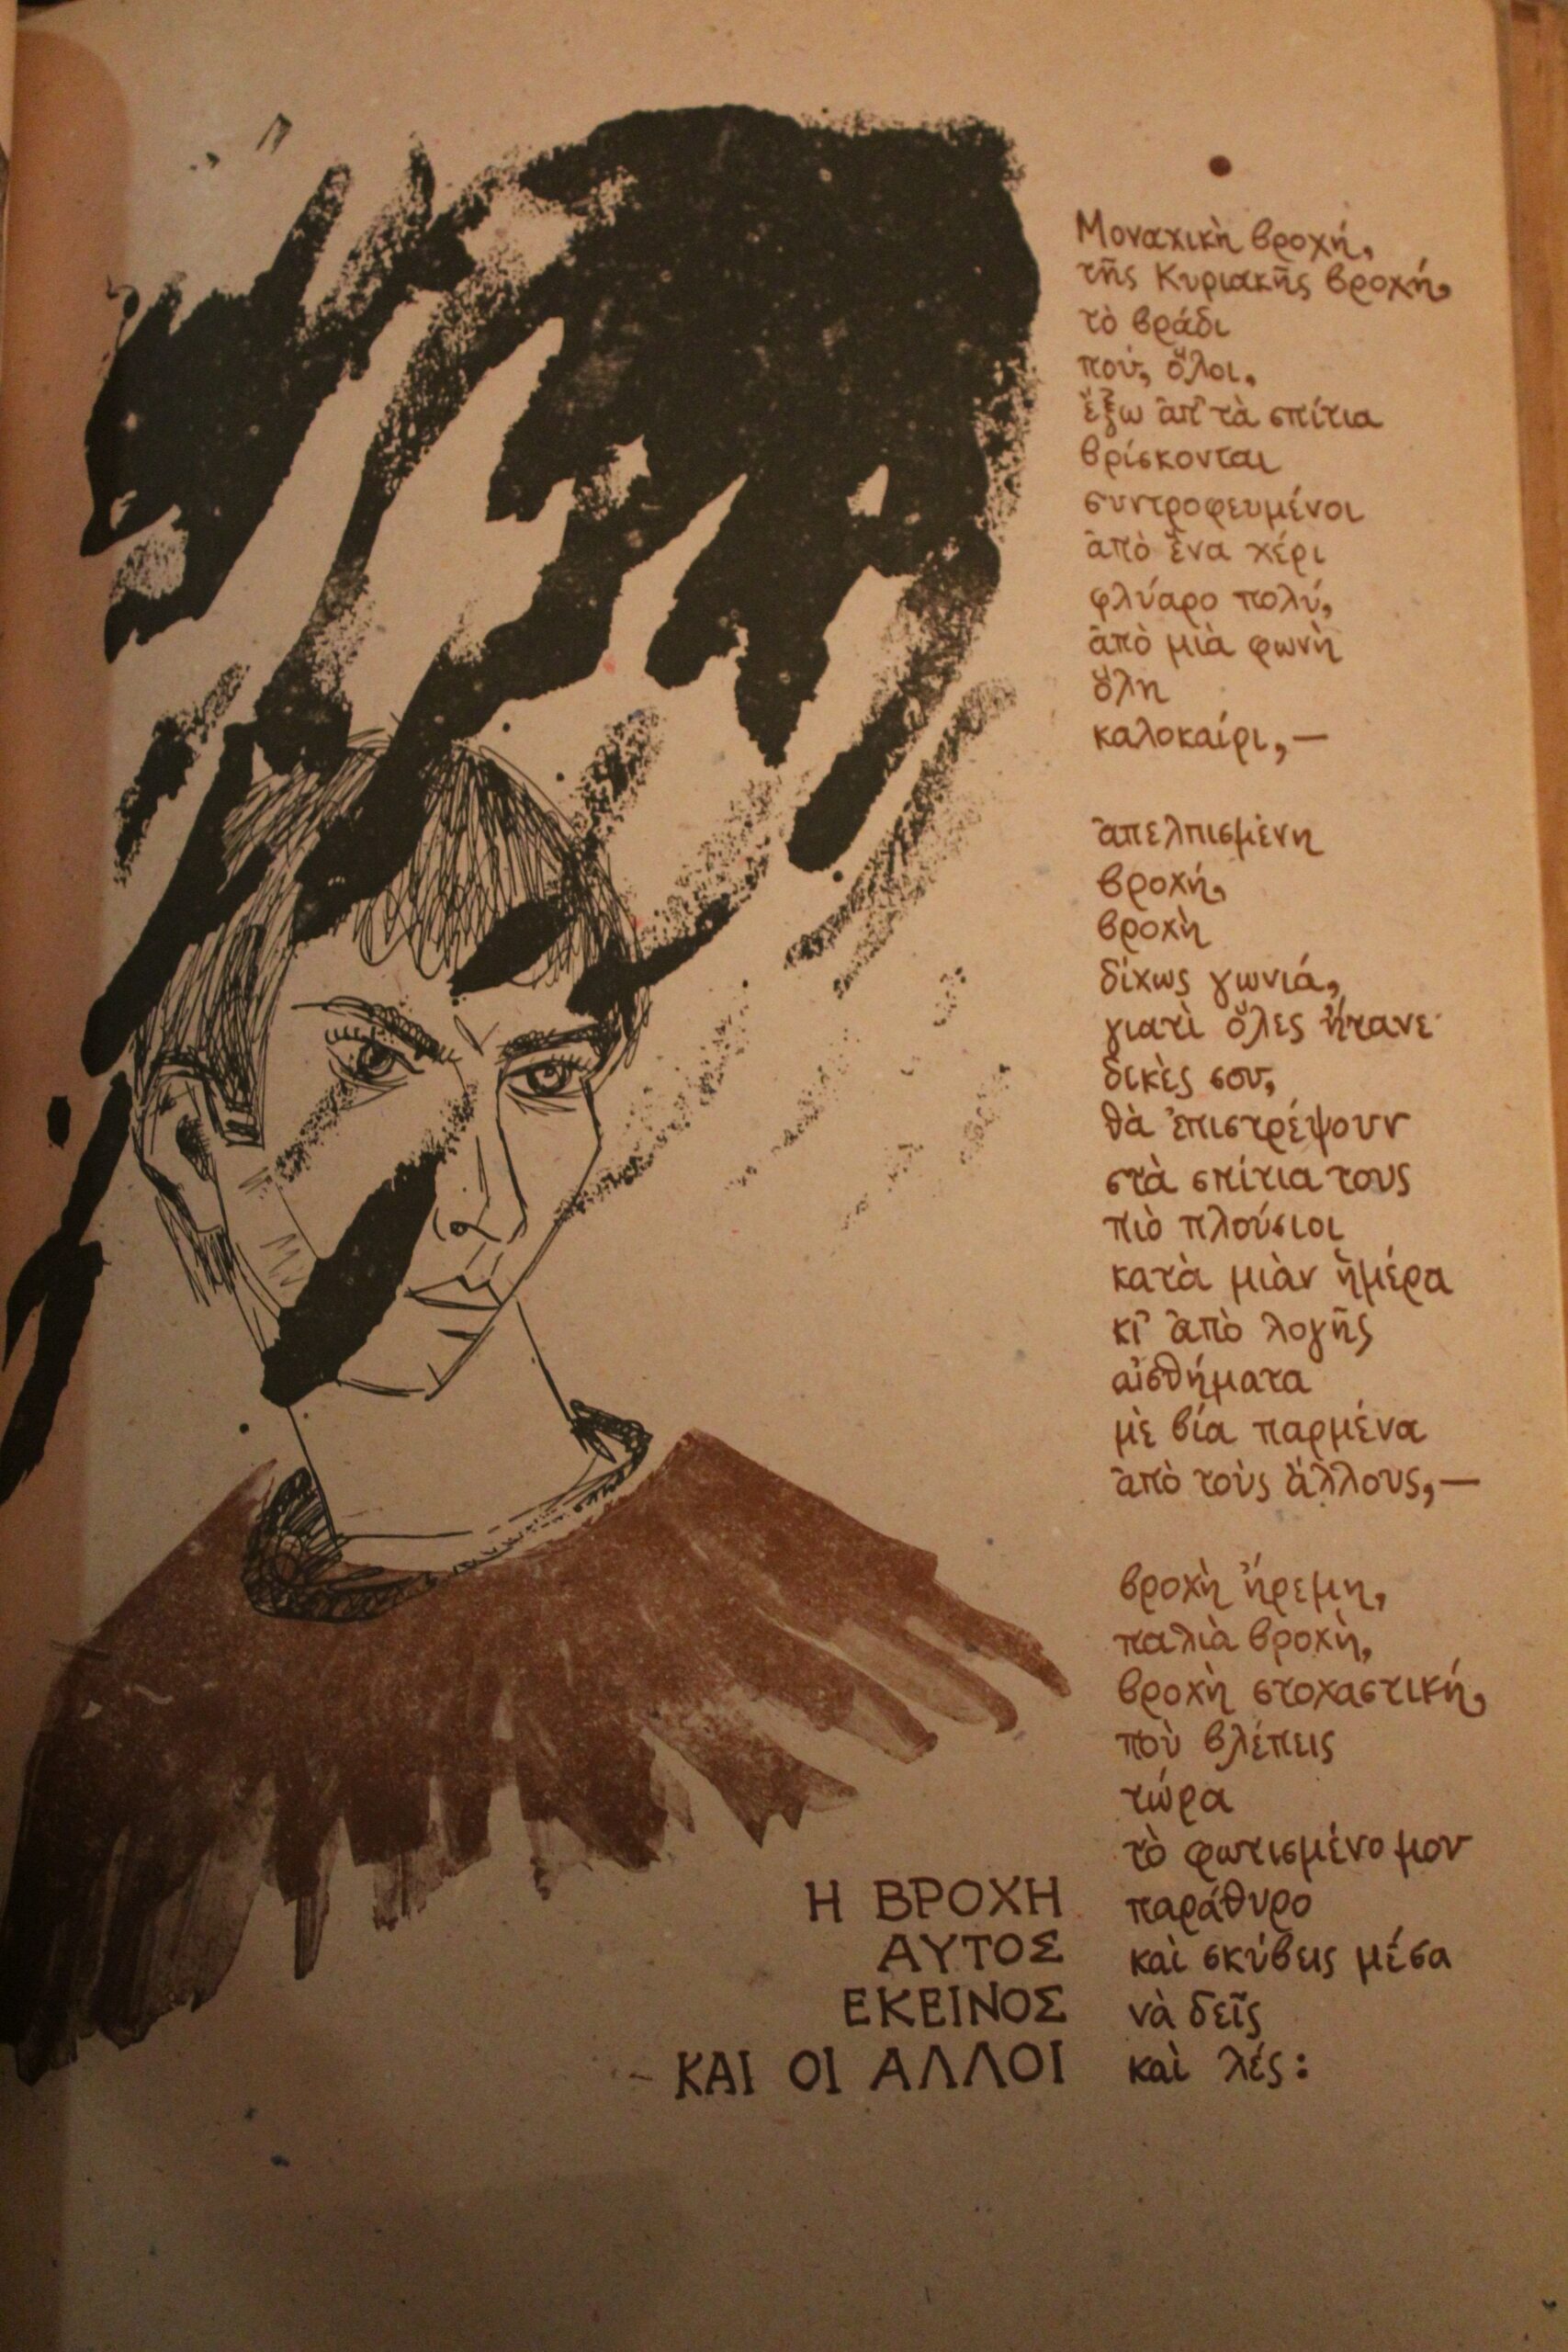 Μοναχικὴ βροχή,
τῆς Κυριακῆς βροχή,
τὸ βράδι
πού, ὅλοι,
ἔξω ἀπ' τὰ σπίτια
βρίσκονται
συντροφευμένοι
ἀπὸ ἕνα χέρι
φλύαρο πολύ,
ἀπὸ μιὰ φωνὴ
ὅλη
καλοκαίρι,—
ἀπελπισμένη
βροχή,
βροχὴ
δίχως γωνιά,
γιατὶ ὅλες ἤτανε
δικὲς σου,
θὰ ἐπιστρέψουν
στὰ σπίτια τους
πιὸ πλούσιοι
κατὰ μιὰν ἡμέρα
κι' ἀπὸ λογῆς
αἰσθήματα
μὲ βία παρμένα
ἀπὸ τοὺς ἄλλους,—
βροχὴ ἤρεμη,
παλιὰ βροχὴ,
βροχὴ στοχαστική,
ποὺ βλέπεις
τώρα
τὸ φωτισμένο μου
παράθυρο
καὶ σκύβεις μέσα
νὰ δεῖς
καὶ λές:
Η ΒΡΟΧΗ
ΑΥΤΟΣ
ΕΚΕΙΝΟΣ
ΚΑΙ ΟΙ ΑΛΛΟΙ